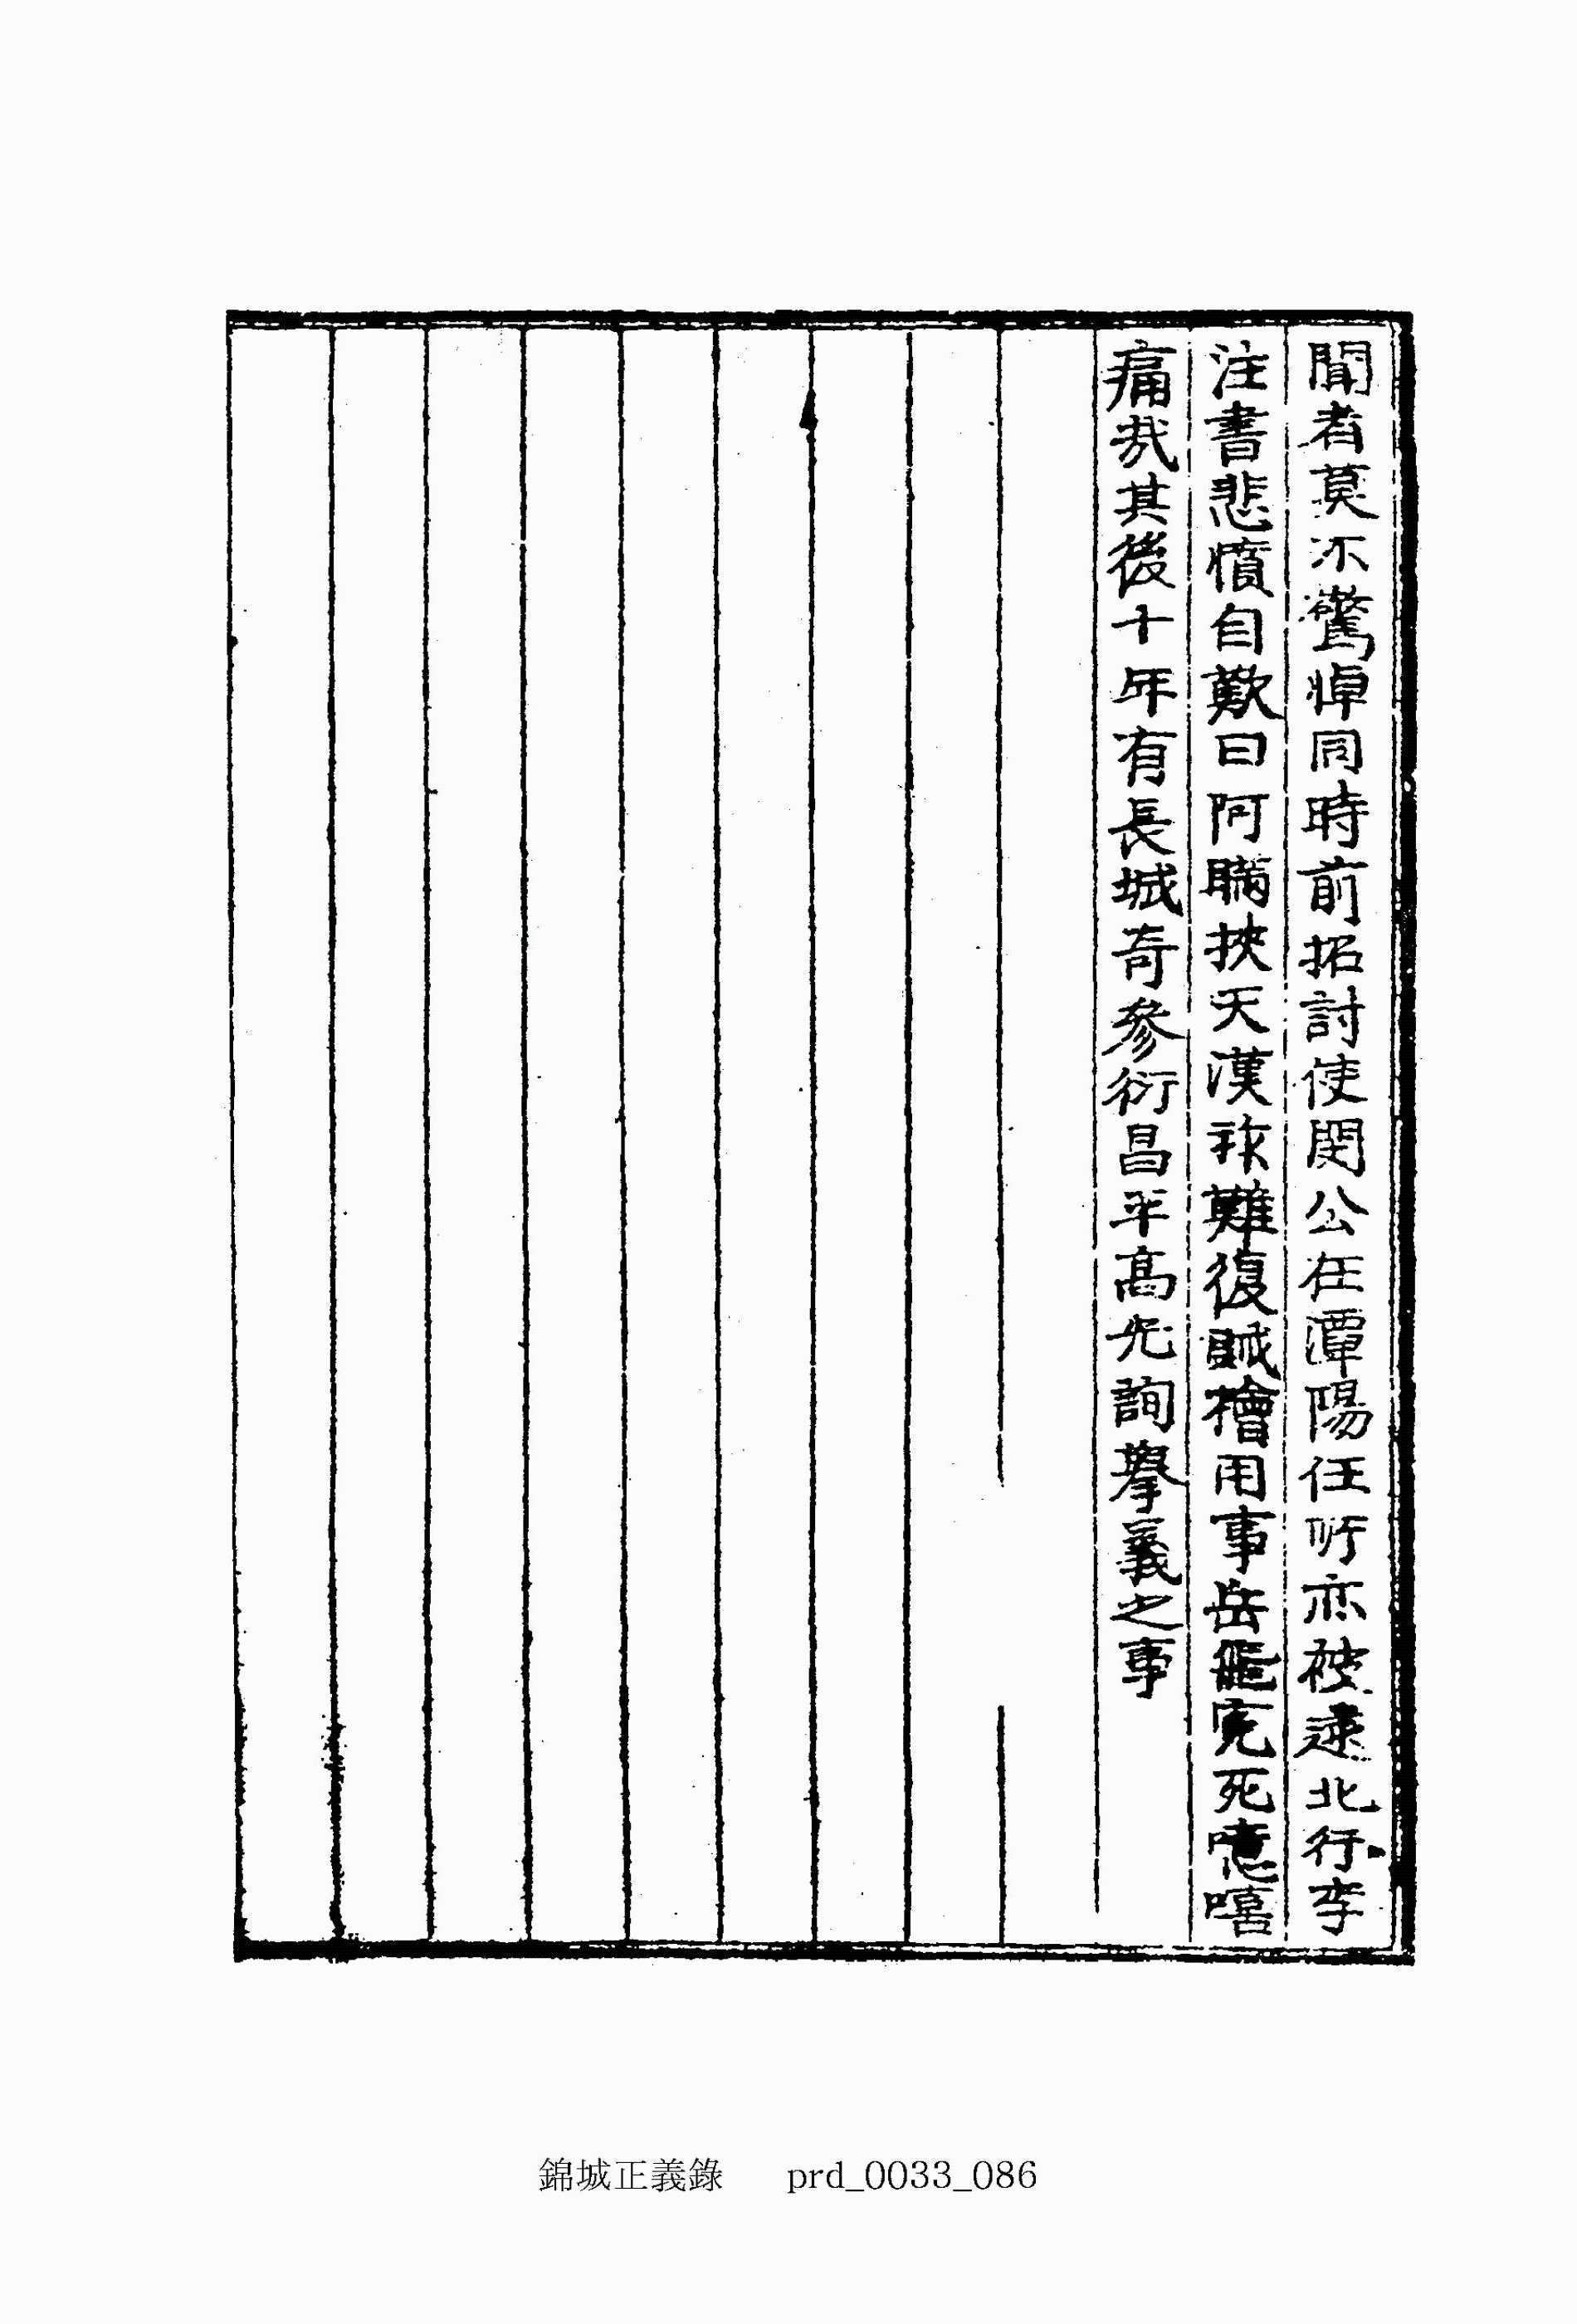 聞者莫不驚悼同時前招討使閔公在潭陽任所亦被逮北行李
注書悲憤自歎曰阿瞞挾天漢祚難復賊檜用事岳飛寃死噫嘻
痛哉其後十年有長城奇參衍昌平高光詢擧義之事
錦城正義錄 prd_0033_086